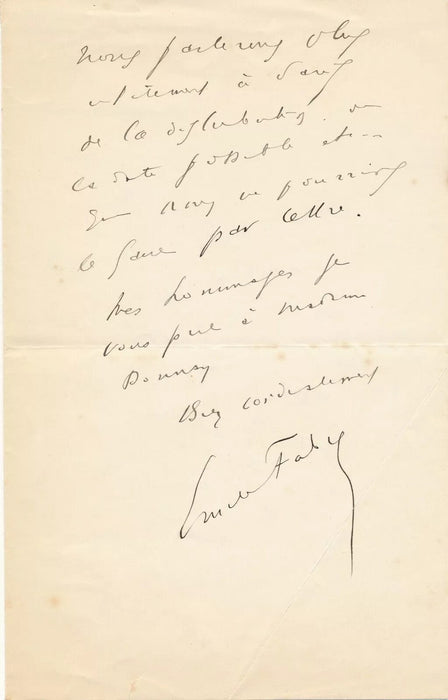 Nous parlerons plus
utilement à Paris
de la distribution. de
la date possible etc...
que nous ne pourrions
le faire par lettre.
Mes hommages je
vous prie à Madame
Donnay
Bien cordialement
Emile Fabre